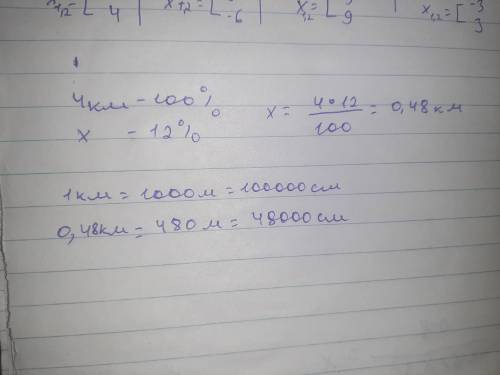 x₁,₂ = [ 4 | x₁,₂ = [ -6 | x₁,₂ = [ 9 | x₁,₂ = [ -3 3
4км - 100%
x - 12%
x = 4·12/100 = 0,48км
1км = 1000м = 100000см
0,48км = 480м = 48000см